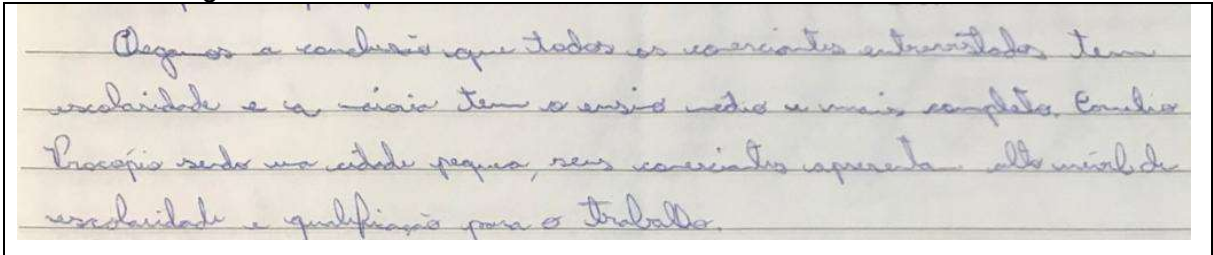 Chegamos a conclusão que todos os comerciantes entrevistados tem
escolaridade e a maioria tem o ensino médio e mais completo. Cornélio
Procópio sendo uma cidade pequena, seus comerciantes apresenta alto nível de
escolaridade e qualificação para o trabalho.